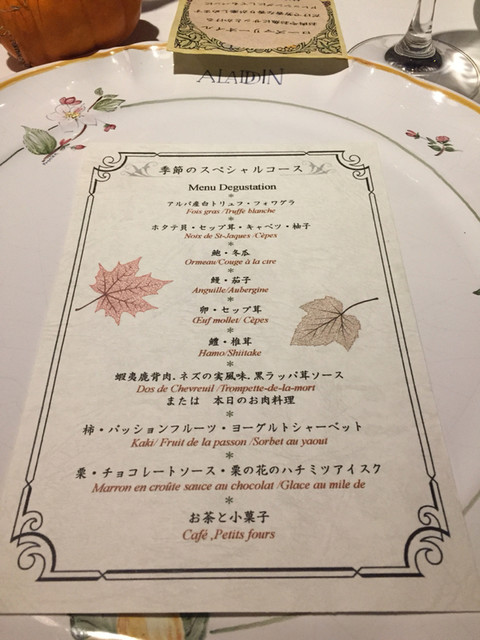 ローズマリーオイル
ALADDIN
季節のスペシャルコース
Menu Degustation
*
アルバ産白トリュフ・フォワグラ
Fois gras /Truffe blanche
*
ホタテ貝・セップ茸・キャベツ・柚子
Noix de St-Jaques /Cèpes
*
鮑・冬瓜
Ormeau/Couge à la cire
*
鰻・茄子
Anguille/Aubergine
*
卵・セップ茸
Œuf mollet/ Cèpes
*
鱧・椎茸
Hamo/Shiitake
*
蝦夷鹿背肉.ネズの実風味.黒ラッパ茸ソース
Dos de Chevreuil /Trompette-de-la-mort
または 本日のお肉料理
*
柿・パッションフルーツ・ヨーグルトシャーベット
Kaki/ Fruit de la passon /Sorbet au yaout
*
栗・チョコレートソース・栗の花のハチミツアイスク
Marron en croûte sauce au chocolat /Glace au mile de
*
お茶と小菓子
Café ,Petits fours